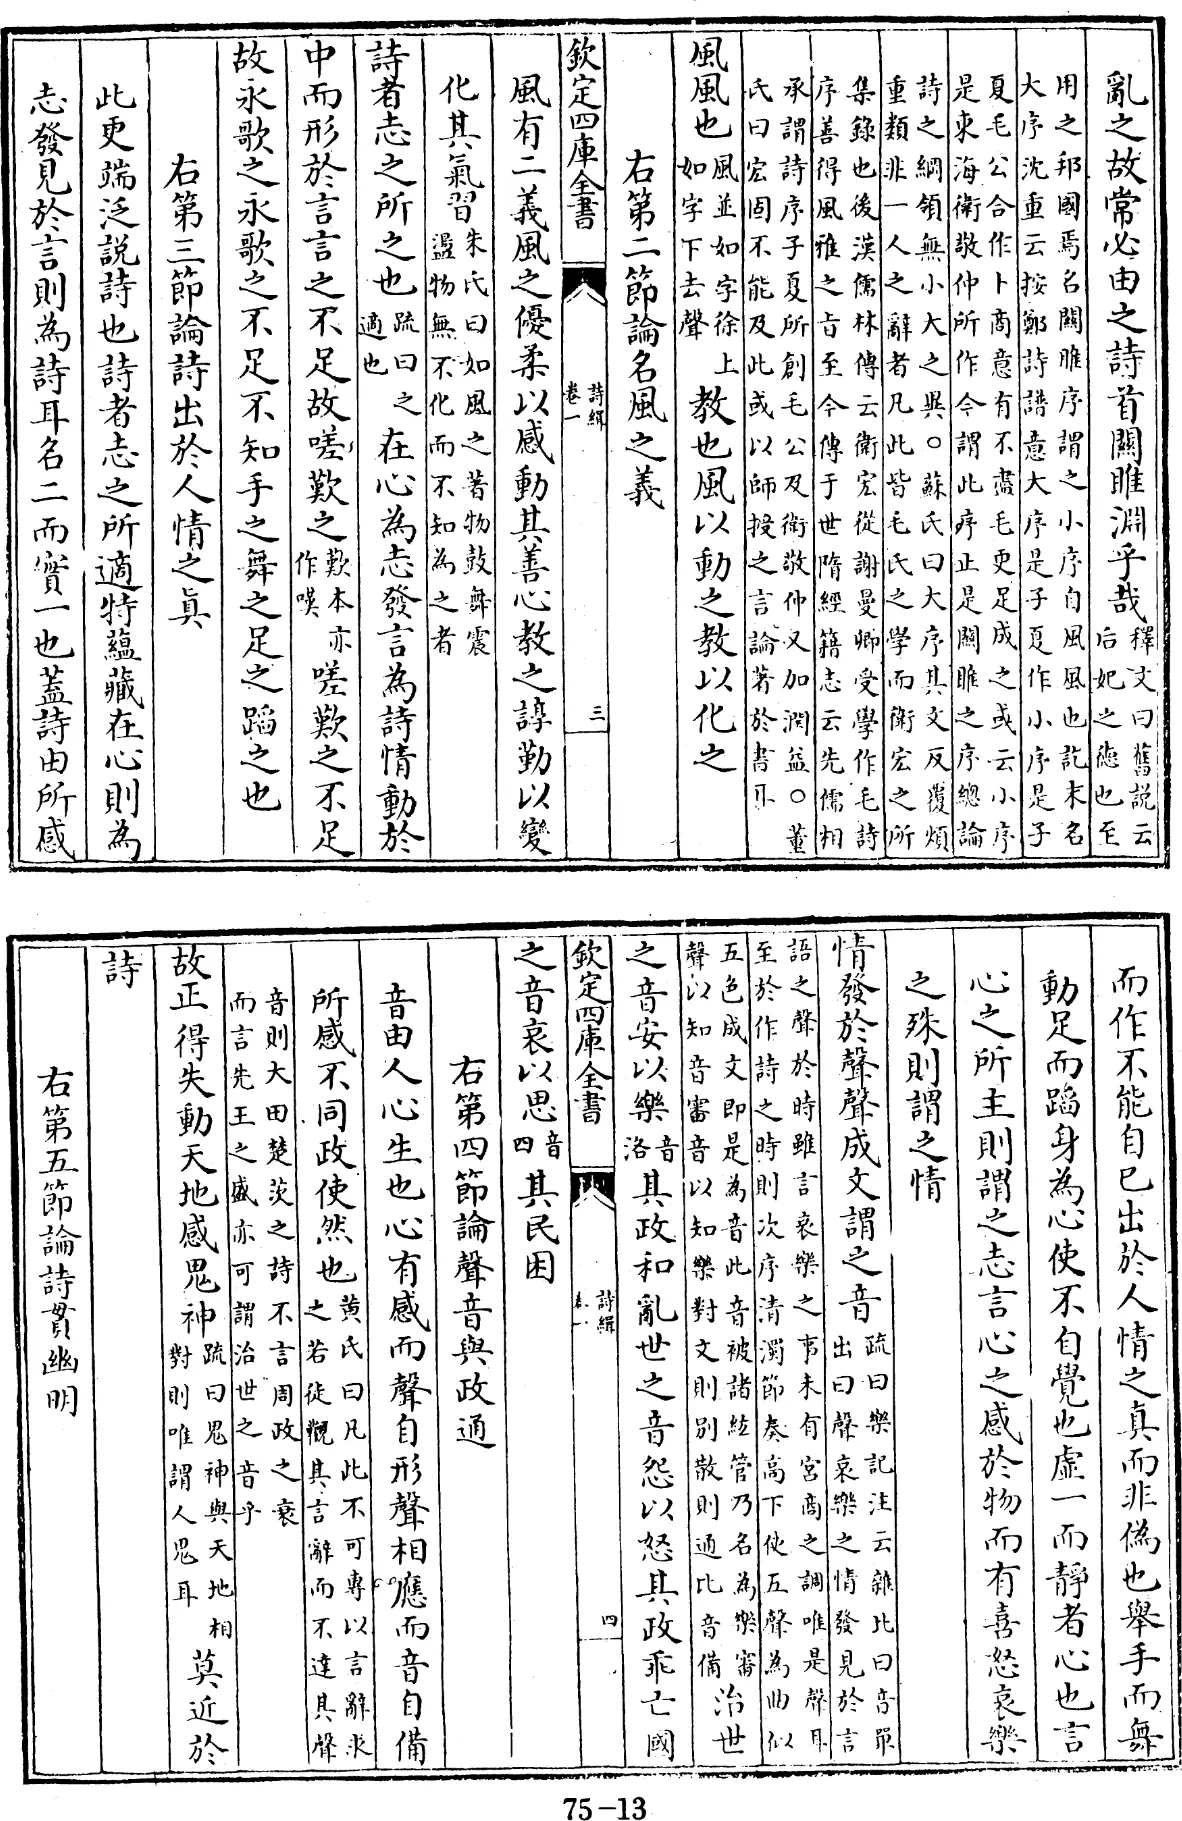 亂之故常必由之詩首關雎淵乎哉釋文曰舊說云后妃之德也至
用之邦國焉名關雎序謂之小序自風風也訖末名
大序沈重云按鄭詩譜意大序是子夏作小序是子
夏毛公合作卜商意有不盡毛更足成之或云小序
是東海衛敬仲所作今謂此序止是關雎之序總論
詩之綱領無小大之異○蘇氏曰大序其文反覆煩
重類非一人之辭者凡此皆毛氏之學而衛宏之所
集錄也後漢儒林傳云衛宏從謝曼卿受學作毛詩
序善得風雅之旨至今傳于世隋經籍志云先儒相
承謂詩序子夏所創毛公及衛敬仲又加潤益○董
氏曰宏固不能及此或以師授之言論著於書耳
風風也風並如字徐上如字下去聲教也風以動之教以化之
右第二節論名風之義
欽定四庫全書 詩緝卷一 三
風有二義風之優柔以感動其善心教之諄勤以變
化其氣習朱氏曰如風之著物鼓舞震盪物無不化而不知為之者
詩者志之所之也疏曰之適也在心為志發言為詩情動於
中而形於言言之不足故嗟歎之歎本亦作嘆嗟歎之不足
故永歌之永歌之不足不知手之舞之足之蹈之也
右第三節論詩出於人情之真
此更端泛說詩也詩者志之所適特蘊藏在心則為
志發見於言則為詩耳名二而實一也蓋詩由所感
而作不能自已出於人情之真而非偽也舉手而舞
動足而蹈身為心使不自覺也虛一而靜者心也言
心之所主則謂之志言心之感於物而有喜怒哀樂
之殊則謂之情
情發於聲聲成文謂之音疏曰樂記注云雜比曰音單出曰聲哀樂之情發見於言
語之聲於時雖言哀樂之事未有宮商之調唯是聲耳
至於作詩之時則次序清濁節奏高下使五聲為曲似
五色成文即是為音此音被諸絃管乃名為樂審
聲以知音審音以知樂對文則別散則通比音備治世
之音安以樂音洛其政和亂世之音怨以怒其政乖亡國
之音哀以思音四其民困
欽定四庫全書 詩緝卷一 四
右第四節論聲音與政通
音由人心生也心有感而聲自形聲相應而音自備
所感不同政使然也黃氏曰凡此不可專以言辭求之若徒觀其言辭而不達其聲
音則大田楚茨之詩不言周政之衰
而言先王之盛亦可謂治世之音乎
故正得失動天地感鬼神疏曰鬼神與天地相對則唯謂人鬼耳莫近於
詩
右第五節論詩貫幽明
75-13